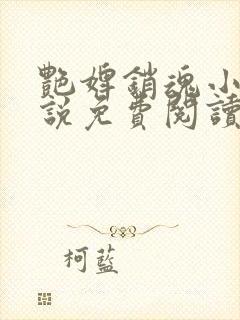 艷婢銷魂小
說免費閱讀
柯藍